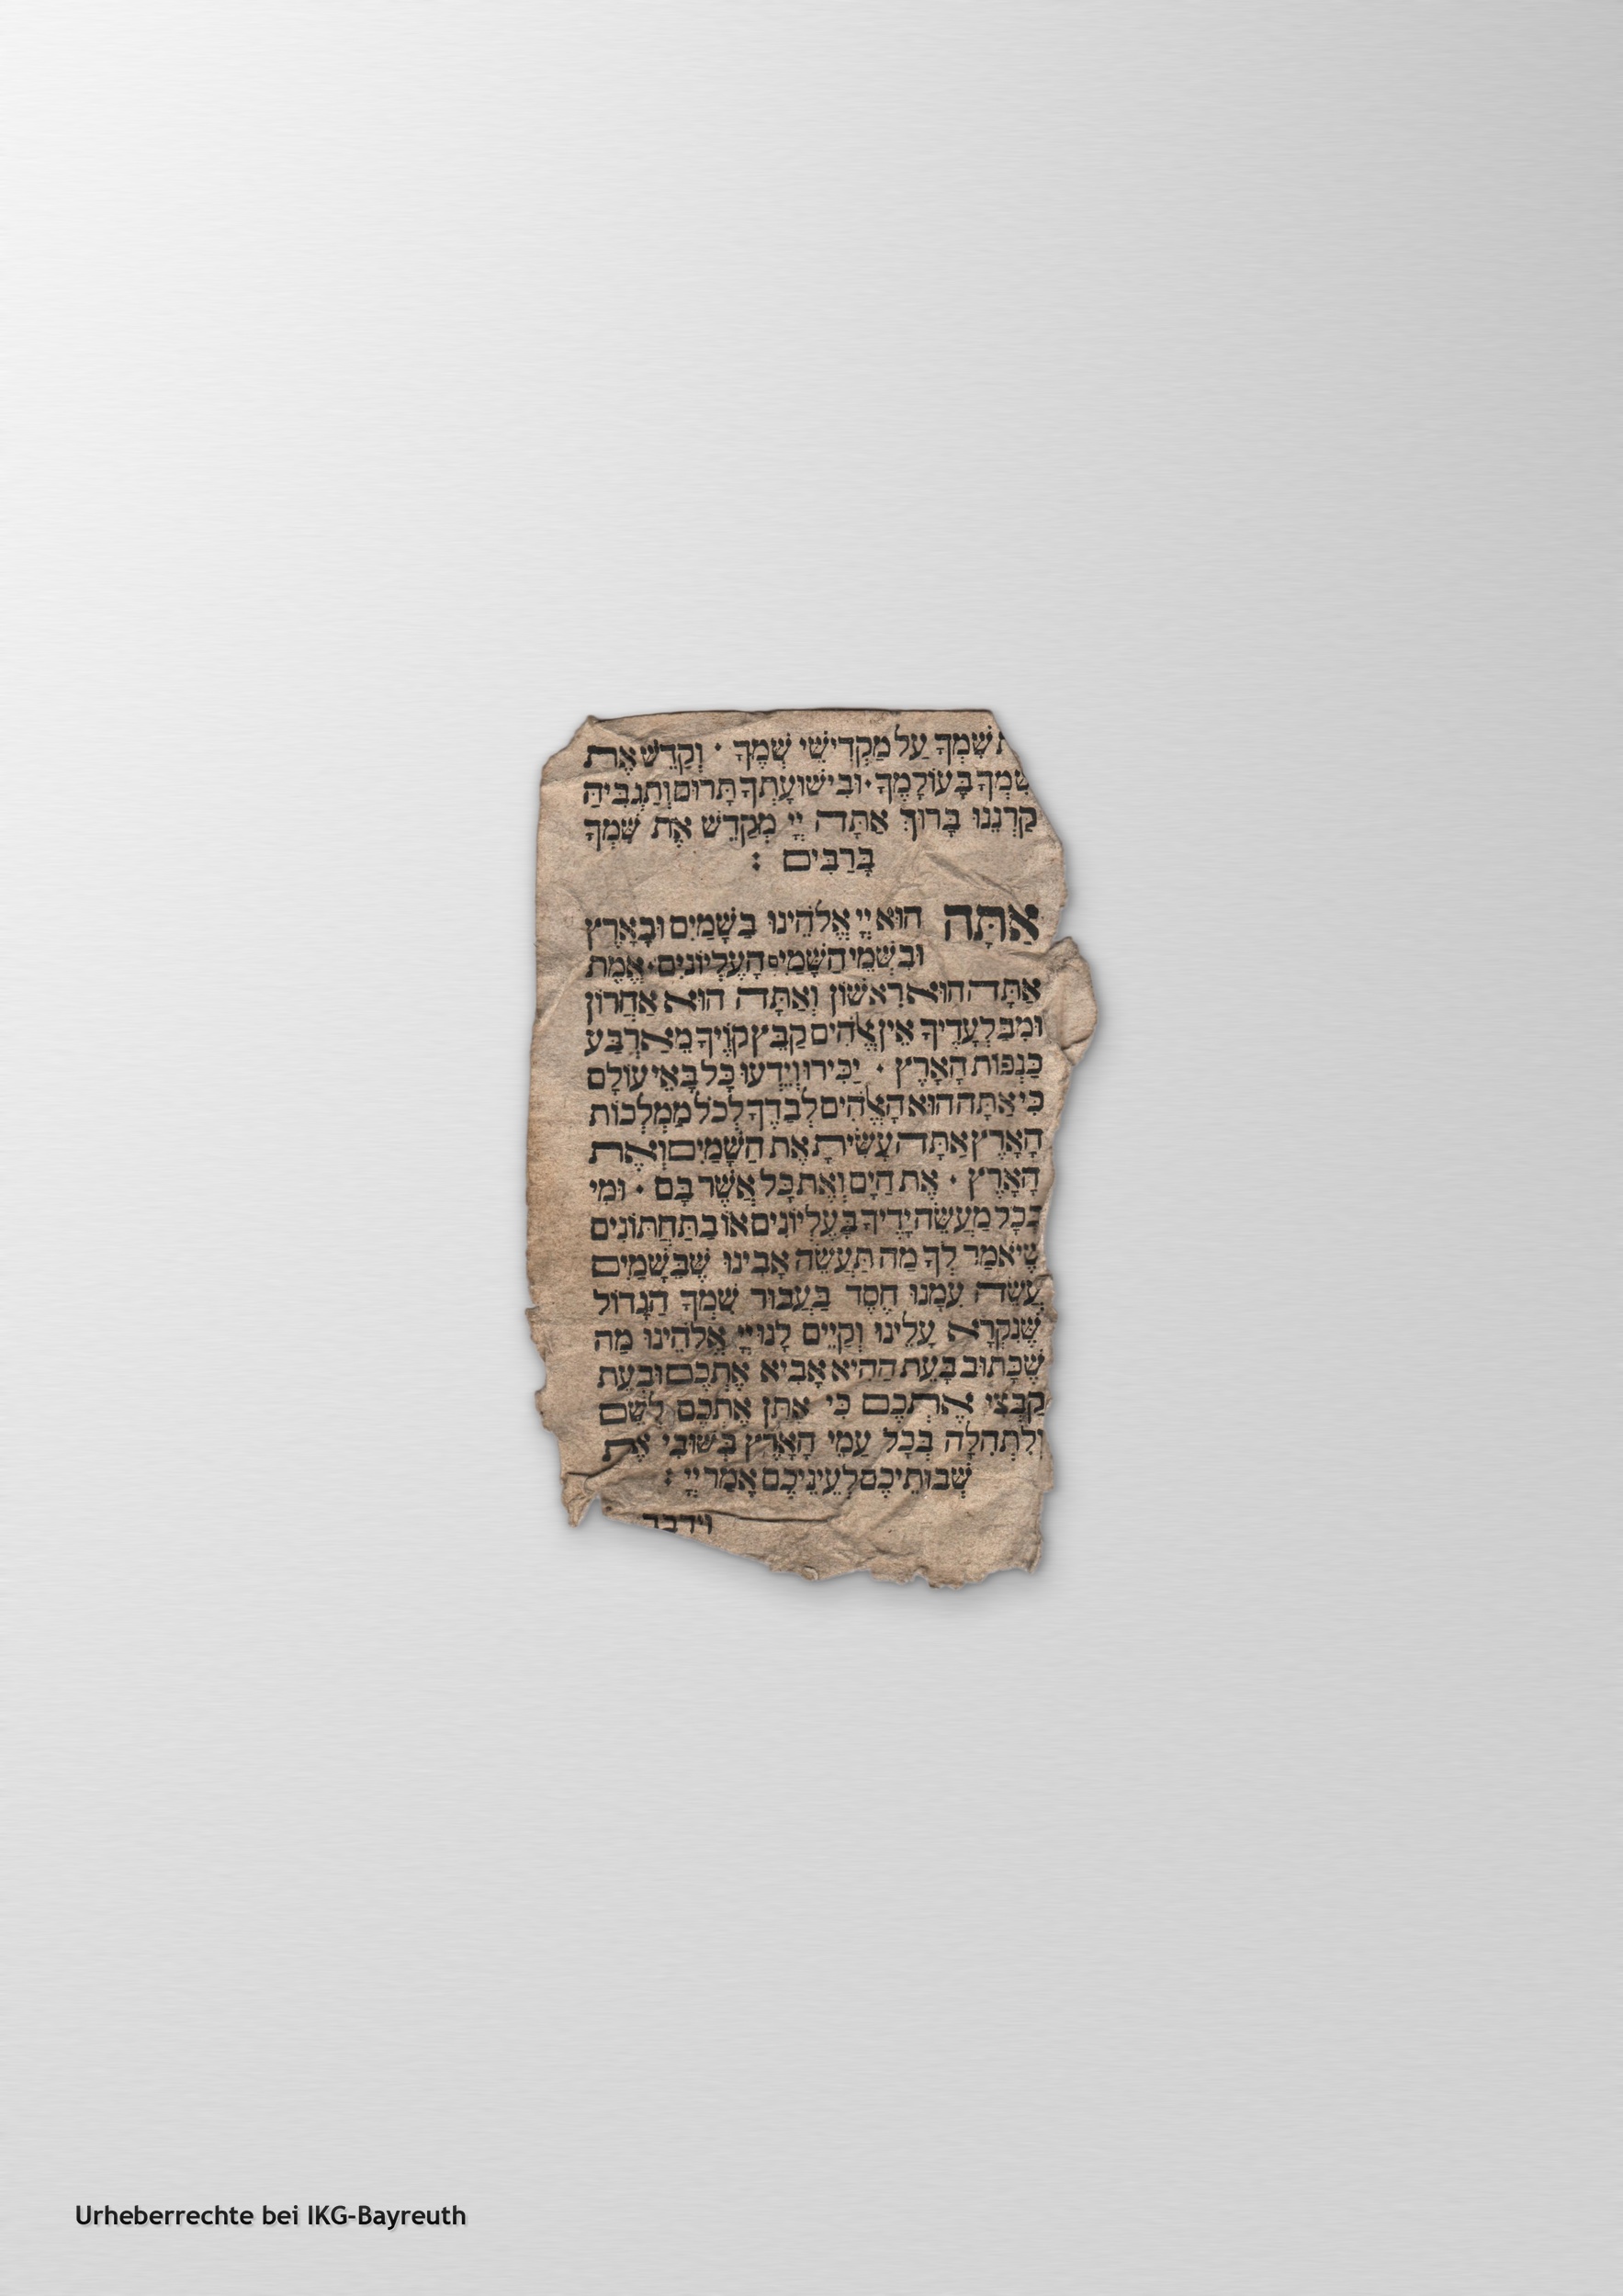 שִׁמְךָ עַל מַקְדִּישֵׁי שְׁמֶךָ · וְקַדֵּשׁ אֶת
שִׁמְךָ בְּעוֹלָמֶךָ · וּבִישׁוּעָתְךָ תָּרוּם וְתַגְבִּיהַּ
קַרְנֵנוּ בָּרוּךְ אַתָּה יְיָ מְקַדֵּשׁ אֶת שִׁמְךָ
בָּרַבִּים :
אַתָּה הוּא יְיָ אֱלֹהֵינוּ בַּשָּׁמַיִם וּבָאָרֶץ
וּבִשְׁמֵי הַשָּׁמַיִם הָעֶלְיוֹנִים · אֱמֶת
אַתָּה הוּא רִאשׁוֹן וְאַתָּה הוּא אַחֲרוֹן
וּמִבַּלְעָדֶיךָ אֵין אֱלֹהִים קַבֵּץ קוֹוֶיךָ מֵאַרְבַּע
כַּנְפוֹת הָאָרֶץ · יַכִּירוּ וְיֵדְעוּ כָּל בָּאֵי עוֹלָם
כִּי אַתָּה הוּא הָאֱלֹהִים לְבַדְּךָ לְכֹל מַמְלְכוֹת
הָאָרֶץ אַתָּה עָשִׂיתָ אֶת הַשָּׁמַיִם וְאֶת
הָאָרֶץ · אֶת הַיָּם וְאֶת כָּל אֲשֶׁר בָּם · וּמִי
בְּכָל מַעֲשֵׂה יָדֶיךָ בָּעֶלְיוֹנִים אוֹ בַתַּחְתּוֹנִים
שֶׁיֹּאמַר לְךָ מַה תַּעֲשֶׂה אָבִינוּ שֶׁבַּשָּׁמַיִם
עֲשֵׂה עִמָּנוּ חֶסֶד בַּעֲבוּר שִׁמְךָ הַגָּדוֹל
שֶׁנִּקְרָא עָלֵינוּ וְקַיֵּים לָנוּ יְיָ אֱלֹהֵינוּ מַה
שֶׁכָּתוּב בָּעֵת הַהִיא אָבִיא אֶתְכֶם וּבָעֵת
קַבְּצִי אֶתְכֶם כִּי אֶתֵּן אֶתְכֶם לְשֵׁם
וְלִתְהִלָּה בְּכָל עַמֵּי הָאָרֶץ בְּשׁוּבִי אֶת
שְׁבוּתֵיכֶם לְעֵינֵיכֶם אָמַר יְיָ :
וידבר
Urheberrechte bei IKG-Bayreuth